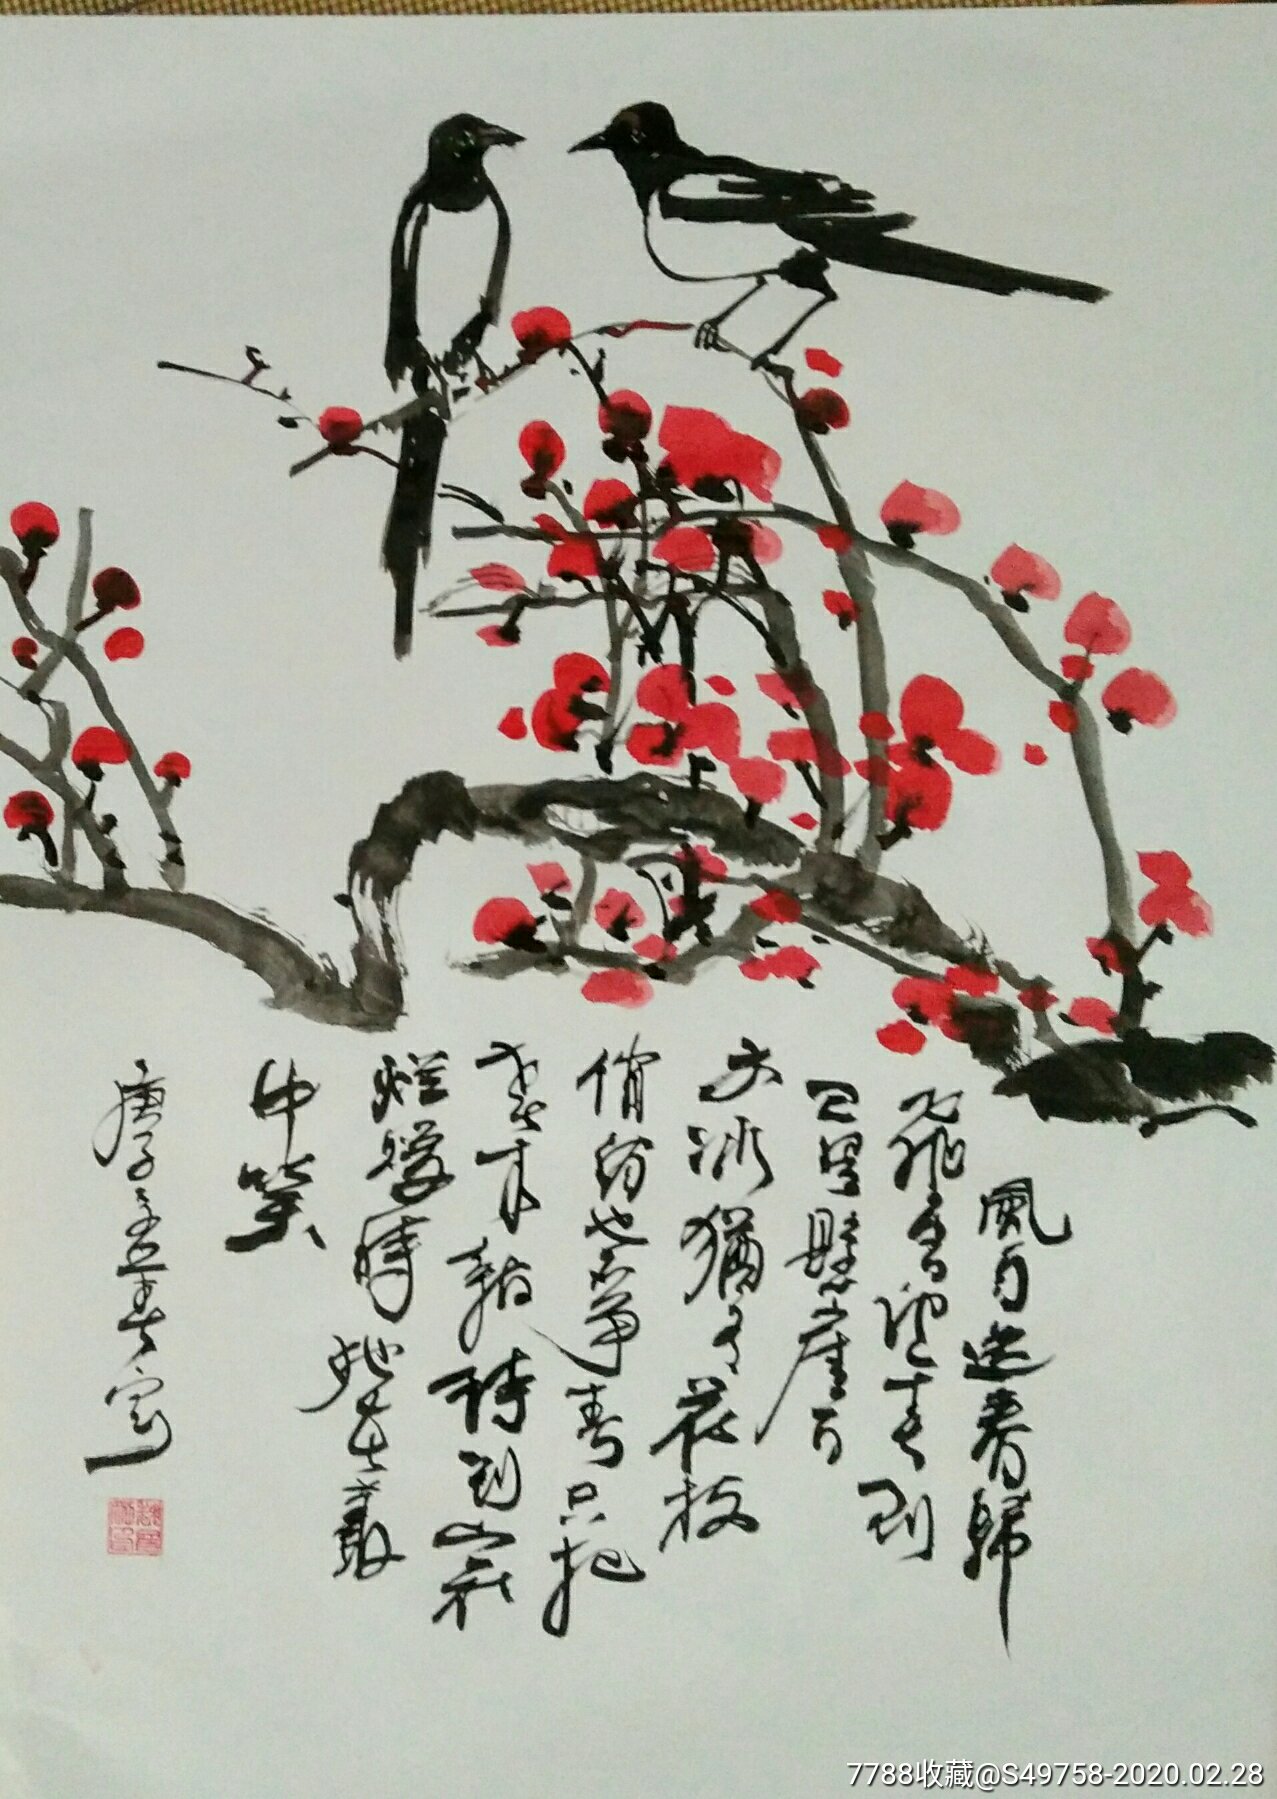 風雨送春歸
飛雪迎春到
已是懸崖百
丈冰猶有花枝
俏俏也不争春只把
春来報待到山花
爛漫時她在叢
中笑
庚子 寫
7788收藏@S49758-2020.02.28